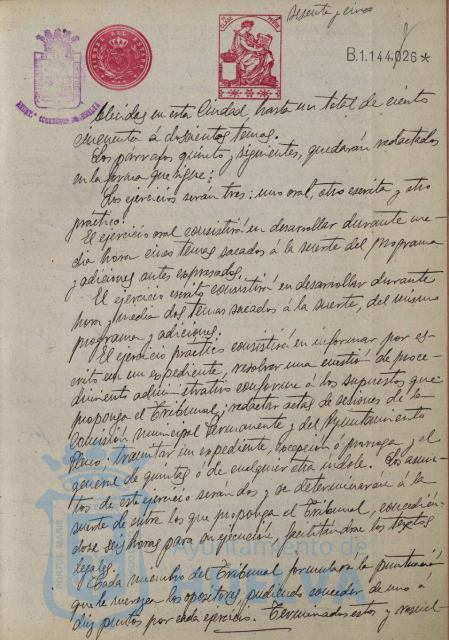 sesenta y cinco
B.1.144,026*
blecidas en esta Ciudad, hasta un total de ciento
cincuenta á doscientos temas.
Los párrafos quinto y siguientes, quedarán redactados
en la forma que sigue:
Los ejercicios serán tres: uno oral, otro escrito y otro
práctico.
El ejercicio oral consistirá en desarrollar durante me-
dia hora cinco temas sacados á la suerte del programa
y adiciones antes expresados.
El ejercicio escrito consistirá en desarrollar durante
hora y media dos temas sacados á la suerte, del mismo
programa y adiciones.
El ejercicio práctico consistirá en informar por es-
crito en un expediente, resolver una cuestión de proce-
dimiento administrativo conforme á los supuestos que
proponga el Tribunal y redactar actas de sesiones de la
Comisión Municipal Permanente y del Ayuntamiento
Pleno; tramitar un expediente, excepción ó prórroga y al
general de quintas ó de cualquier otra índole. Los asun-
tos de este ejercicio serán dos y se determinarán á la
suerte de entre los que proponga el Tribunal, concedién-
dose seis horas para su ejecución, facilitándose los textos
legales.
Cada miembro del Tribunal formulará la puntuación
que le merezcan los opositores, pudiendo conceder de uno á
diez puntos por cada ejercicio. Terminados estos y
Ayuntamiento de
HUELVA